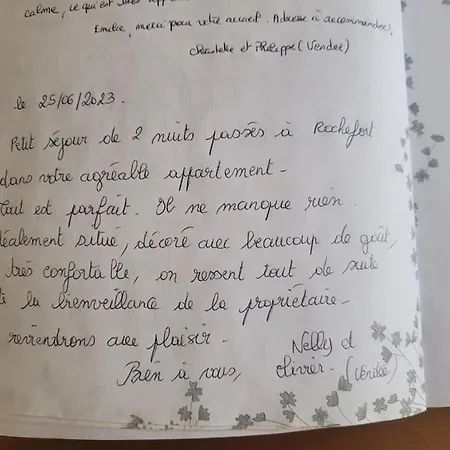 calme, ce qui est
merci pour votre accueil. Adresse à recommander!
et Philippe (Vendée)
le 25/06/2023.
Petit séjour de 2 nuits passés à Rochefort
dans votre agréable appartement-
Tout est parfait. Il ne manque rien.
Idéalement situé, décoré avec beaucoup de goût,
très confortable, on ressent tout de suite
la bienveillance de la propriétaire-
reviendrons avec plaisir-
Bien à vous,
Nelly et
Olivier. (Vendée)